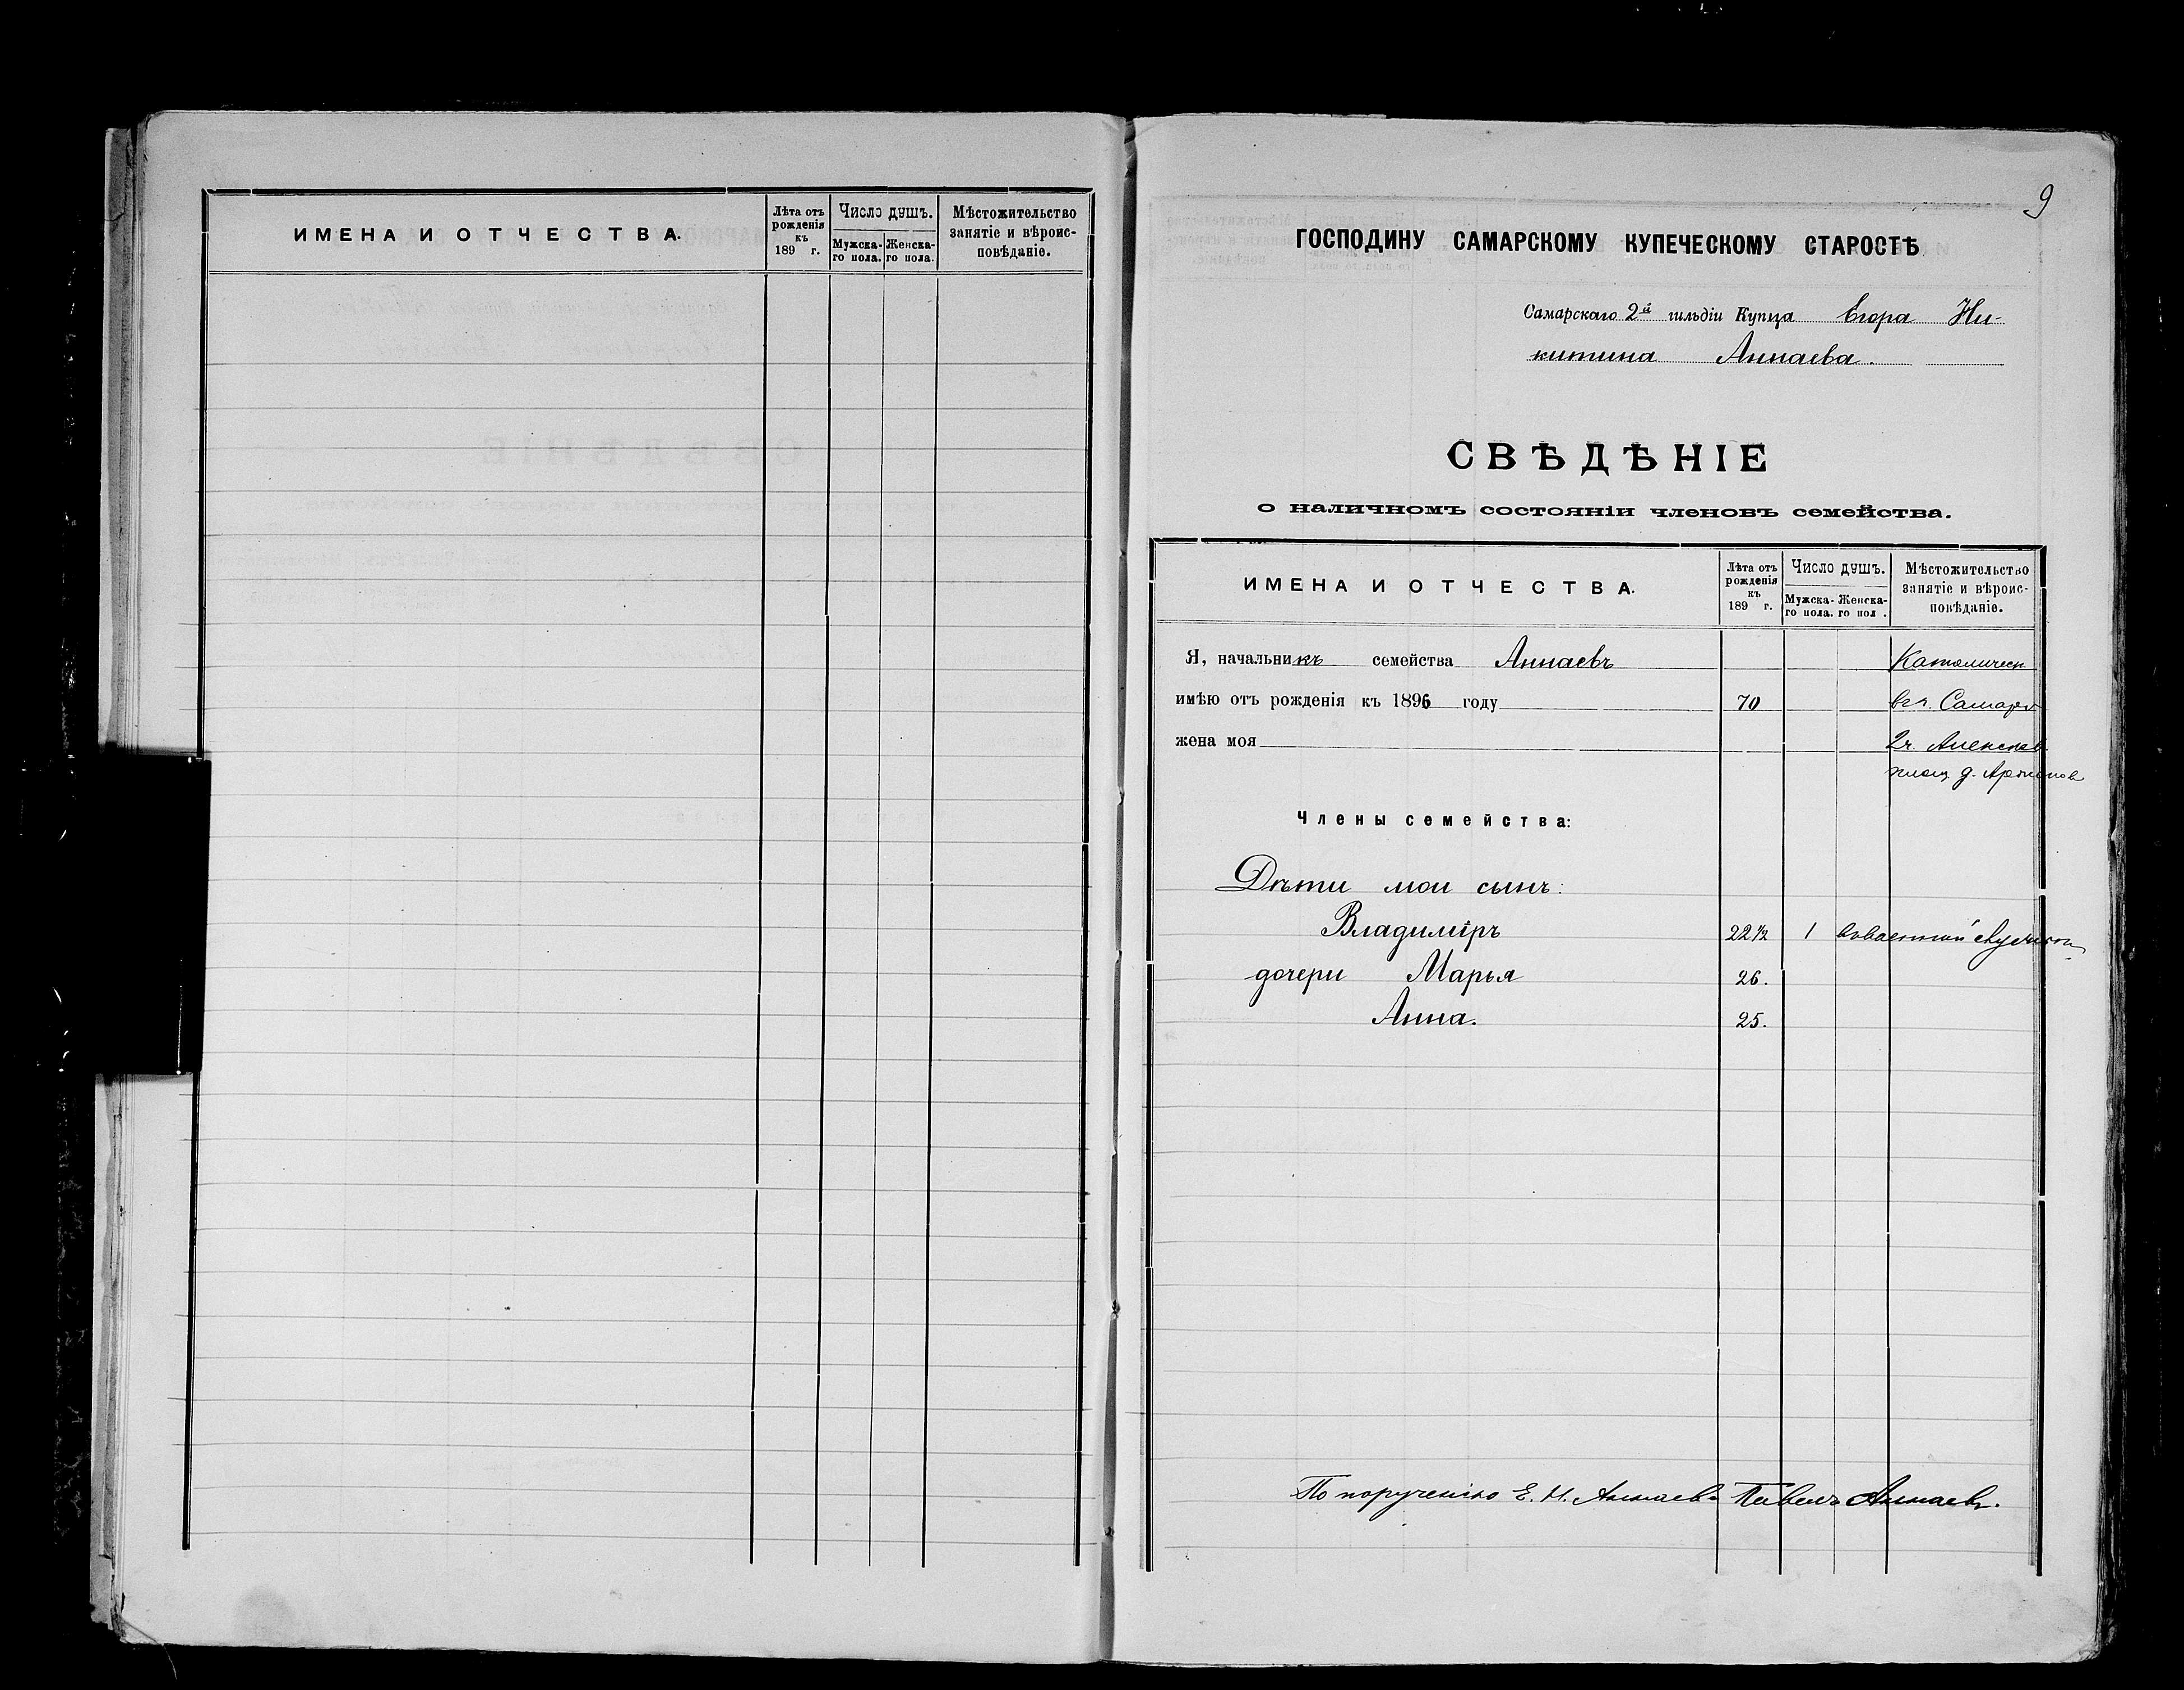 ИМЕНА И ОТЧЕСТВА.
Лѣта отъ рожденія къ 189 г.
Число душъ.
Мужска-го пола.
Женска-го пола.
Мѣстожительство занятіе и вѣроис-повѣданіе.
9
ГОСПОДИНУ САМАРСКОМУ КУПЕЧЕСКОМУ СТАРОСТѢ
Самарскаго 2й гильдіи Купца Егора Ни-
китина Аннаева.
СВѢДѢНІЕ
о наличномъ состояніи членовъ семейства.
ИМЕНА И ОТЧЕСТВА.
Лѣта отъ рожденія къ 189 г.
Число душъ.
Мужска-го пола.
Женска-го пол .
Мѣстожительство занятіе и вѣроис-повѣданіе.
Я, начальникъ семейства Аннаевъ Католическ
имѣю отъ рожденія къ 1896 году 70 в г. Самарѣ
жена моя 2 ч. Алексѣев
площ д.
Члены семейства:
Дѣти мои сынъ:
Владиміръ 22 1/2 1
дочери Марья 26.
Анна. 25.
По порученію Е. Н. Аннаева Павелъ Аннаевъ.